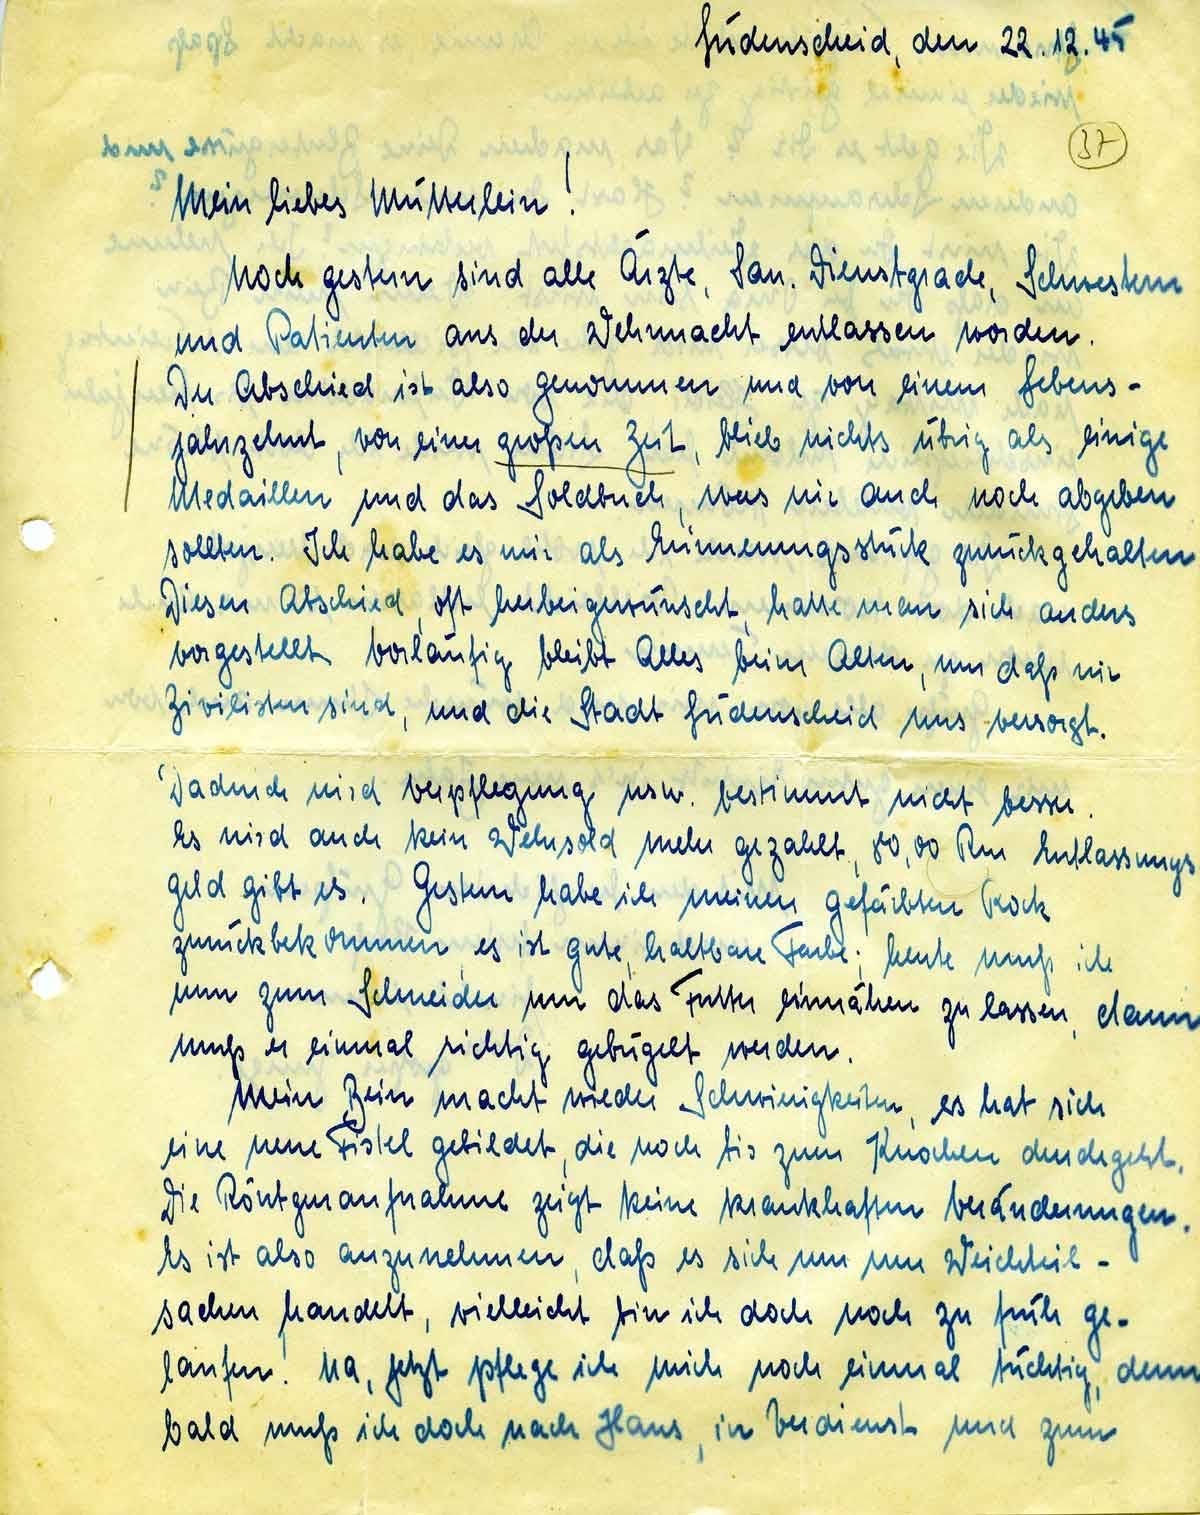 Lüdenscheid, den 22.12.45
37
Mein liebes Mütterlein!
Noch gestern sind alle Ärzte, San. Dienstgrade, Schwestern
und Patienten aus der Wehrmacht entlassen worden.
Der Abschied ist also genommen und von einem Lebens-
jahrzehnt, von einer großen Zeit, blieb nichts übrig als einige
Medaillen und das Soldbuch, was wir auch noch abgeben
sollten. Ich habe es mir als Erinnerungsstück zurückgehalten
Diesen Abschied, oft herbeigewünscht, hatte man sich anders
vorgestellt. Vorläufig bleibt Alles beim Alten, nur daß wir
Zivilisten sind, und die Stadt Lüdenscheid uns versorgt.
Dadurch wird Verpflegung usw. bestimmt nicht besser.
Es wird auch kein Wehrsold mehr gezahlt, 80,00 Rm Entlassungs
geld gibt es. Gestern habe ich meinen gefärbten Rock
zurückbekommen, es ist gute, haltbare Farbe; heute muß ich
nun zum Schneider um das Futter einnähen zu lassen, dann
muß er einmal richtig gebügelt werden.
Mein Bein macht wieder Schwierigkeiten, es hat sich
eine neue Fistel gebildet, die noch bis zum Knochen durchgeht.
Die Röntgenaufnahme zeigt keine krankhaften Veränderungen.
Es ist also anzunehmen, daß es sich um nur Weichteil-
sachen handelt, vielleicht bin ich doch noch zu früh ge-
laufen! Na, jetzt pflege ich mich noch einmal tüchtig, denn
bald muß ich doch nach Haus, in Verdienst und zum